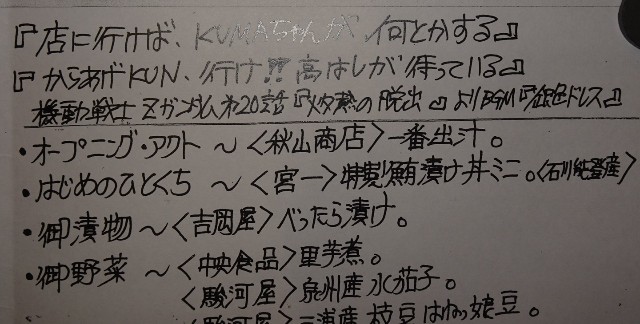 『店に行けば、KUMAちゃんが、何とかする』
『からあげKUN、行け!!高はしが待っている』
機動戦士Zガンダム第20話『灼熱の脱出』よりBGM『銀色ドレス』
・オープニング・アクト ～〈秋山商店〉一番出汁。
・はじめのひとくち ～〈宮一〉特製鮪漬け丼ミニ。〈石川能登産〉
・御漬物 ～〈吉岡屋〉べったら漬け。
・御野菜 ～〈中央食品〉里芋煮。
〈駿河屋〉泉州産水茄子。
〈駿河屋〉三浦産枝豆はねっ娘豆。